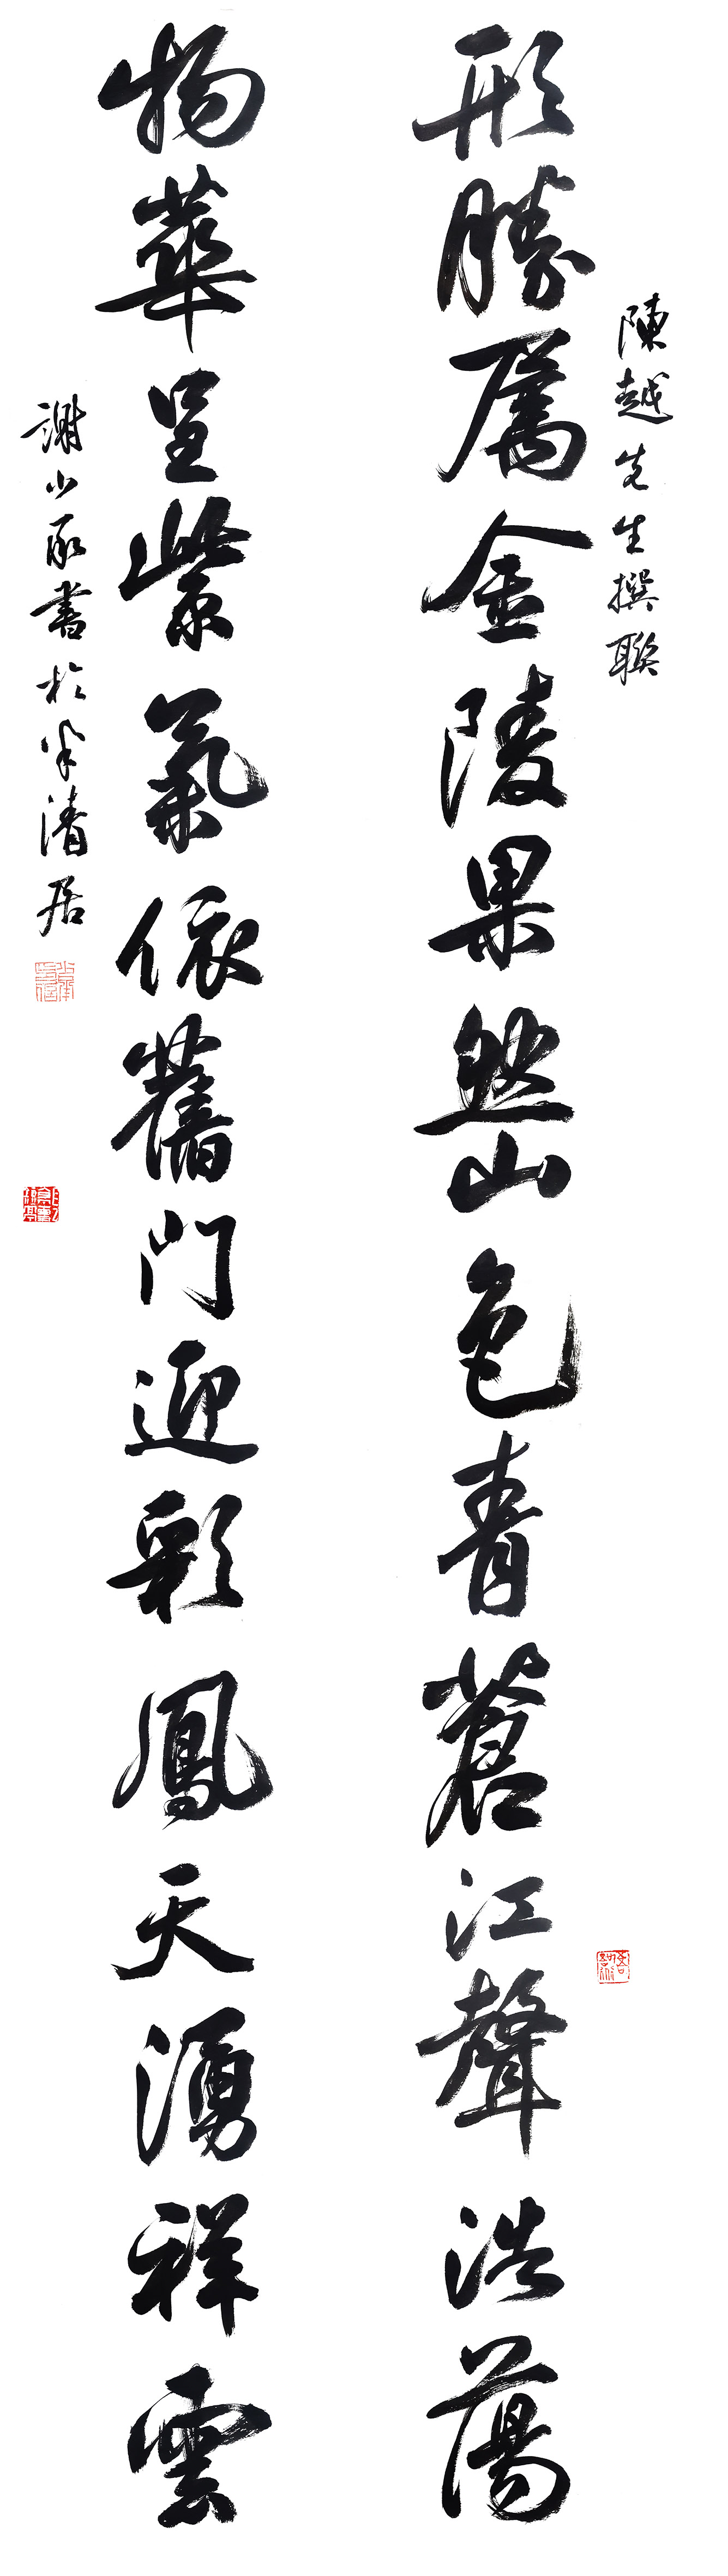 陳越先生撰聯
形勝屬金陵果然山色青蒼江聲浩蕩
物華呈紫氣依舊門迎彩鳳天湧祥雲
謝少承書於半清居